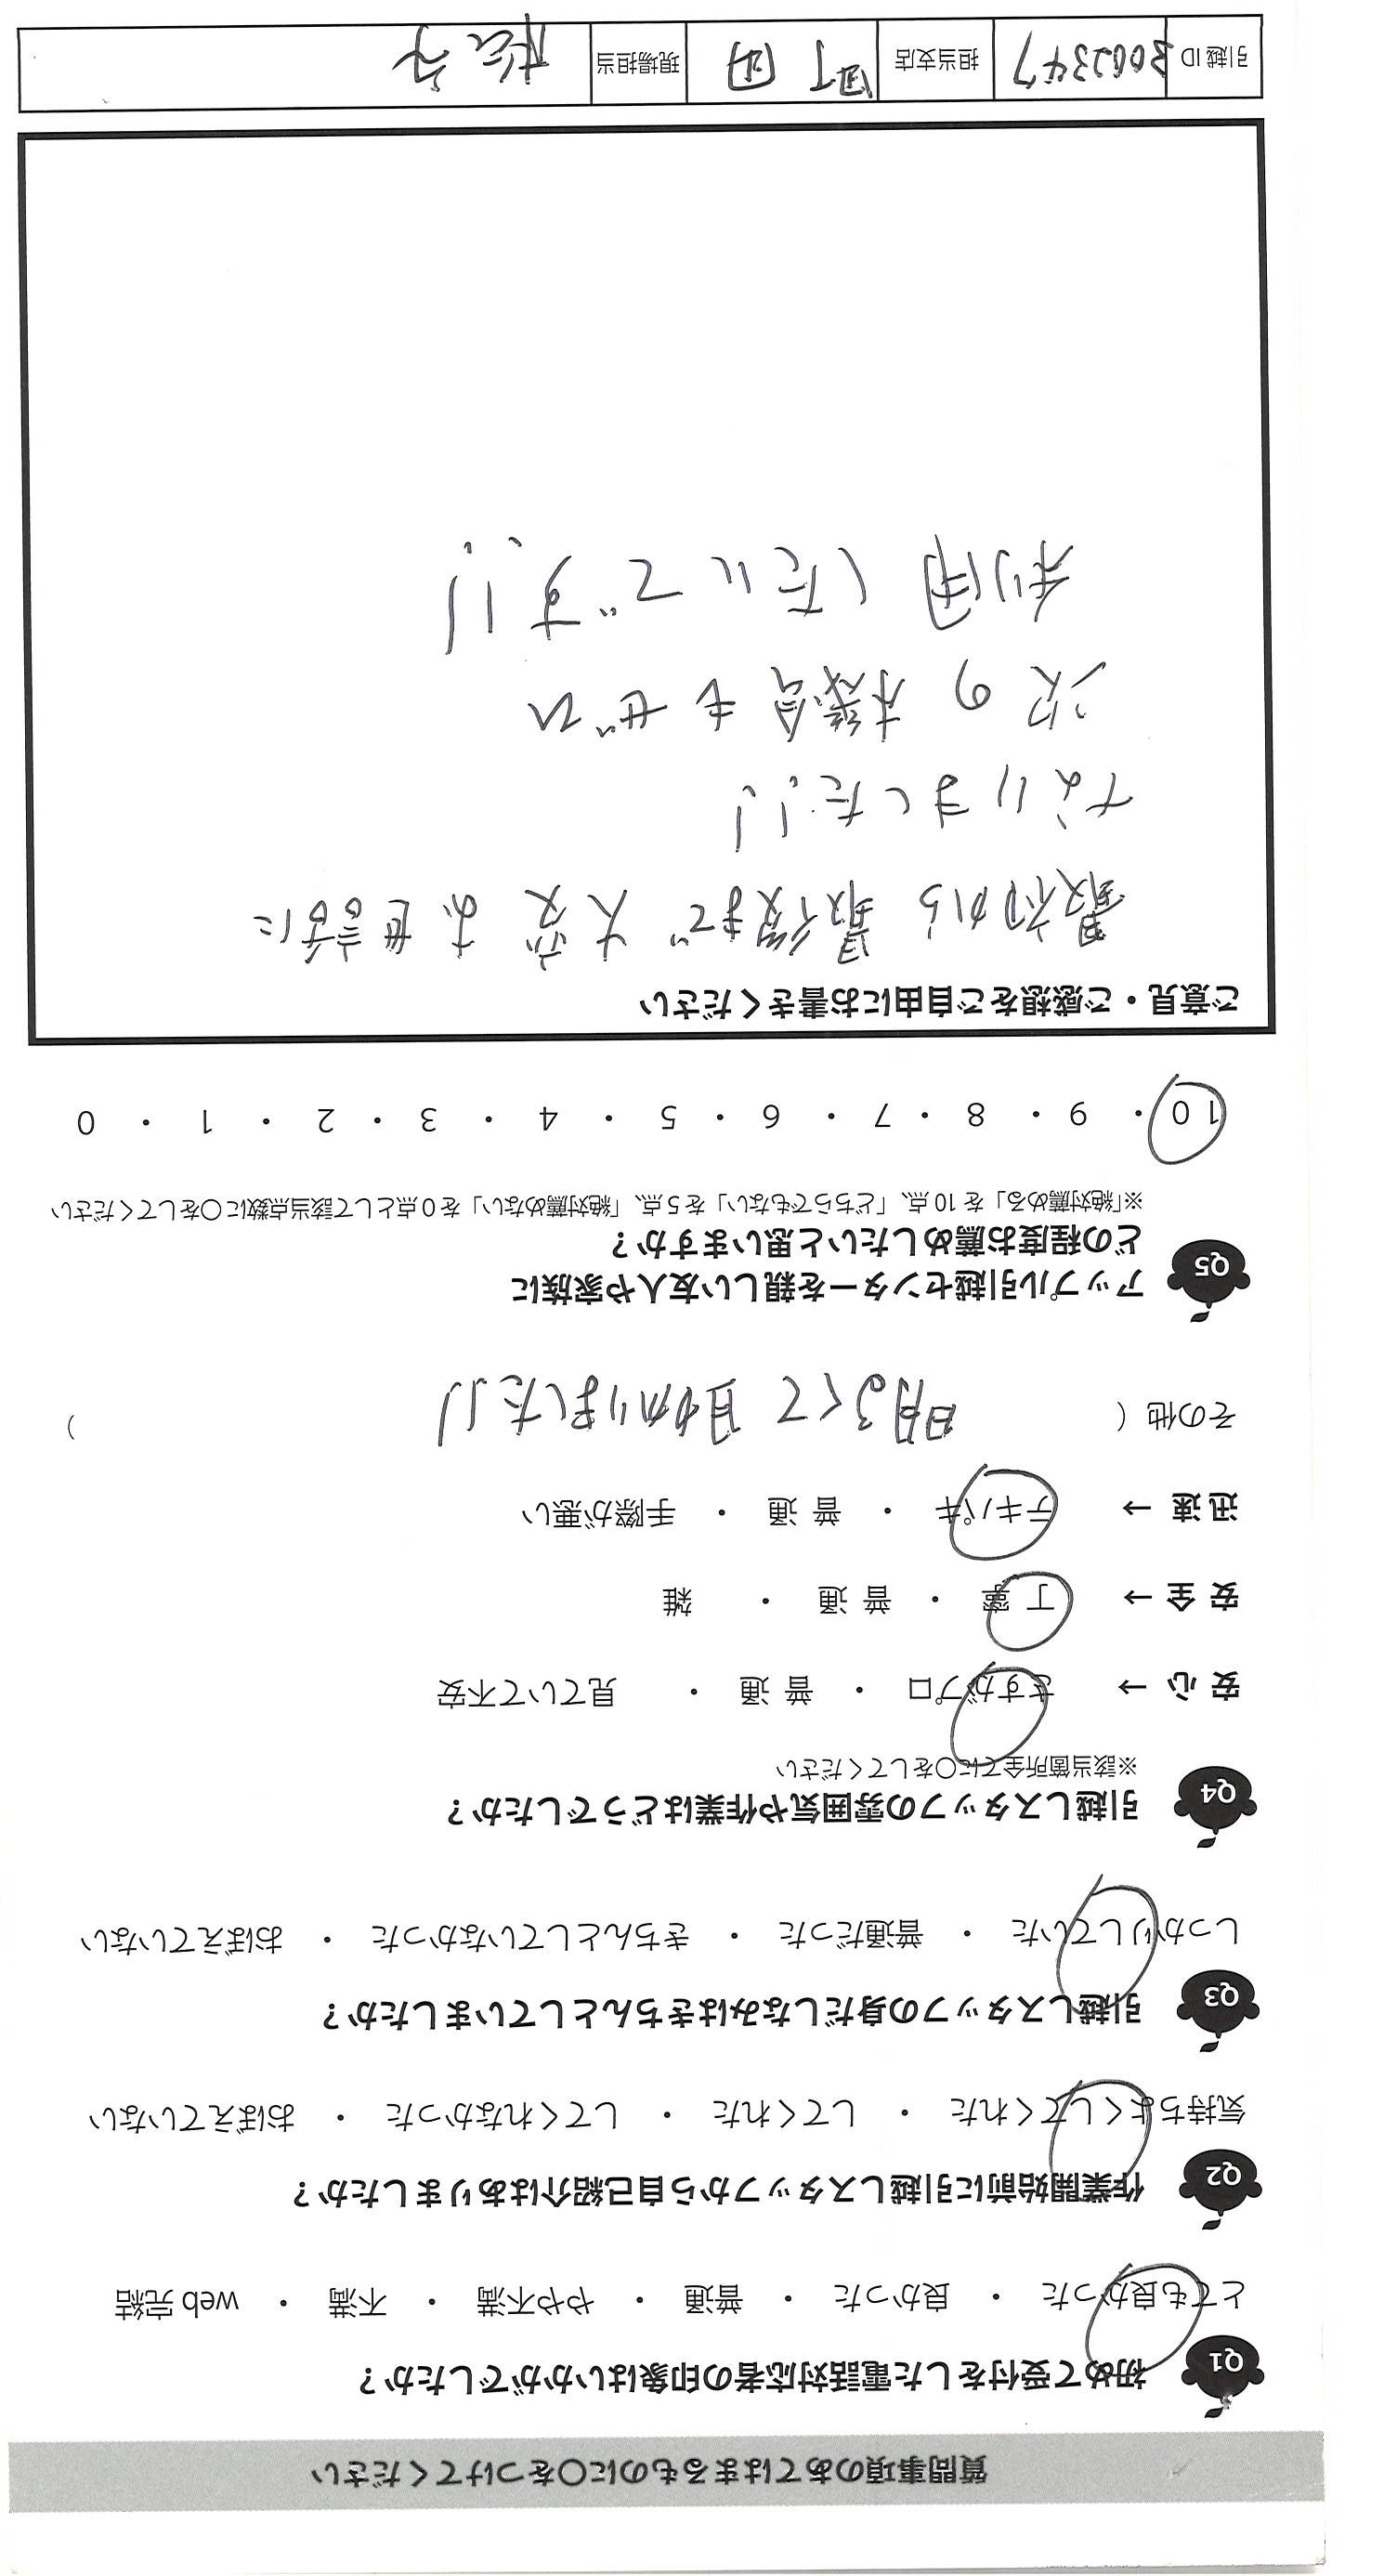 質問事項のあてはまるものに〇をつけてください
Q1 初めて受付をした電話対応者の印象はいかがでしたか？
とても良かった ・ 良かった ・ 普通 ・ やや不満 ・ 不満 ・ web 完結
Q2 作業開始前に引越しスタッフから自己紹介はありましたか？
気持ちよくしてくれた ・ してくれた ・ してくれなかった ・ おぼえていない
Q3 引越しスタッフの身だしなみはきちんとしていましたか？
しっかりしていた ・ 普通だった ・ きちんとしていなかった ・ おぼえていない
Q4 引越しスタッフの雰囲気や作業はどうでしたか？
※該当箇所全てに〇をしてください
安 心 → さすがプロ ・ 普 通 ・ 見ていて不安
安 全 → 丁 寧 ・ 普 通 ・ 雑
迅 速 → テキパキ ・ 普 通 ・ 手際が悪い
その他（ 明るくて助かりました!! ）
Q5 アップル引越センターを親しい友人や家族に
どの程度お薦めしたいと思いますか？
※「絶対薦める」を 10 点、「どちらでもない」を 5 点、「絶対薦めない」を 0 点として該当点数に〇をしてください
10 ・ 9 ・ 8 ・ 7 ・ 6 ・ 5 ・ 4 ・ 3 ・ 2 ・ 1 ・ 0
ご意見・ご感想をご自由にお書きください
最初から最後まで大変お世話に
なりました!!
次の機会もぜひ
利用したいです!!
引越 ID 3062347 担当支店 町田 現場担当